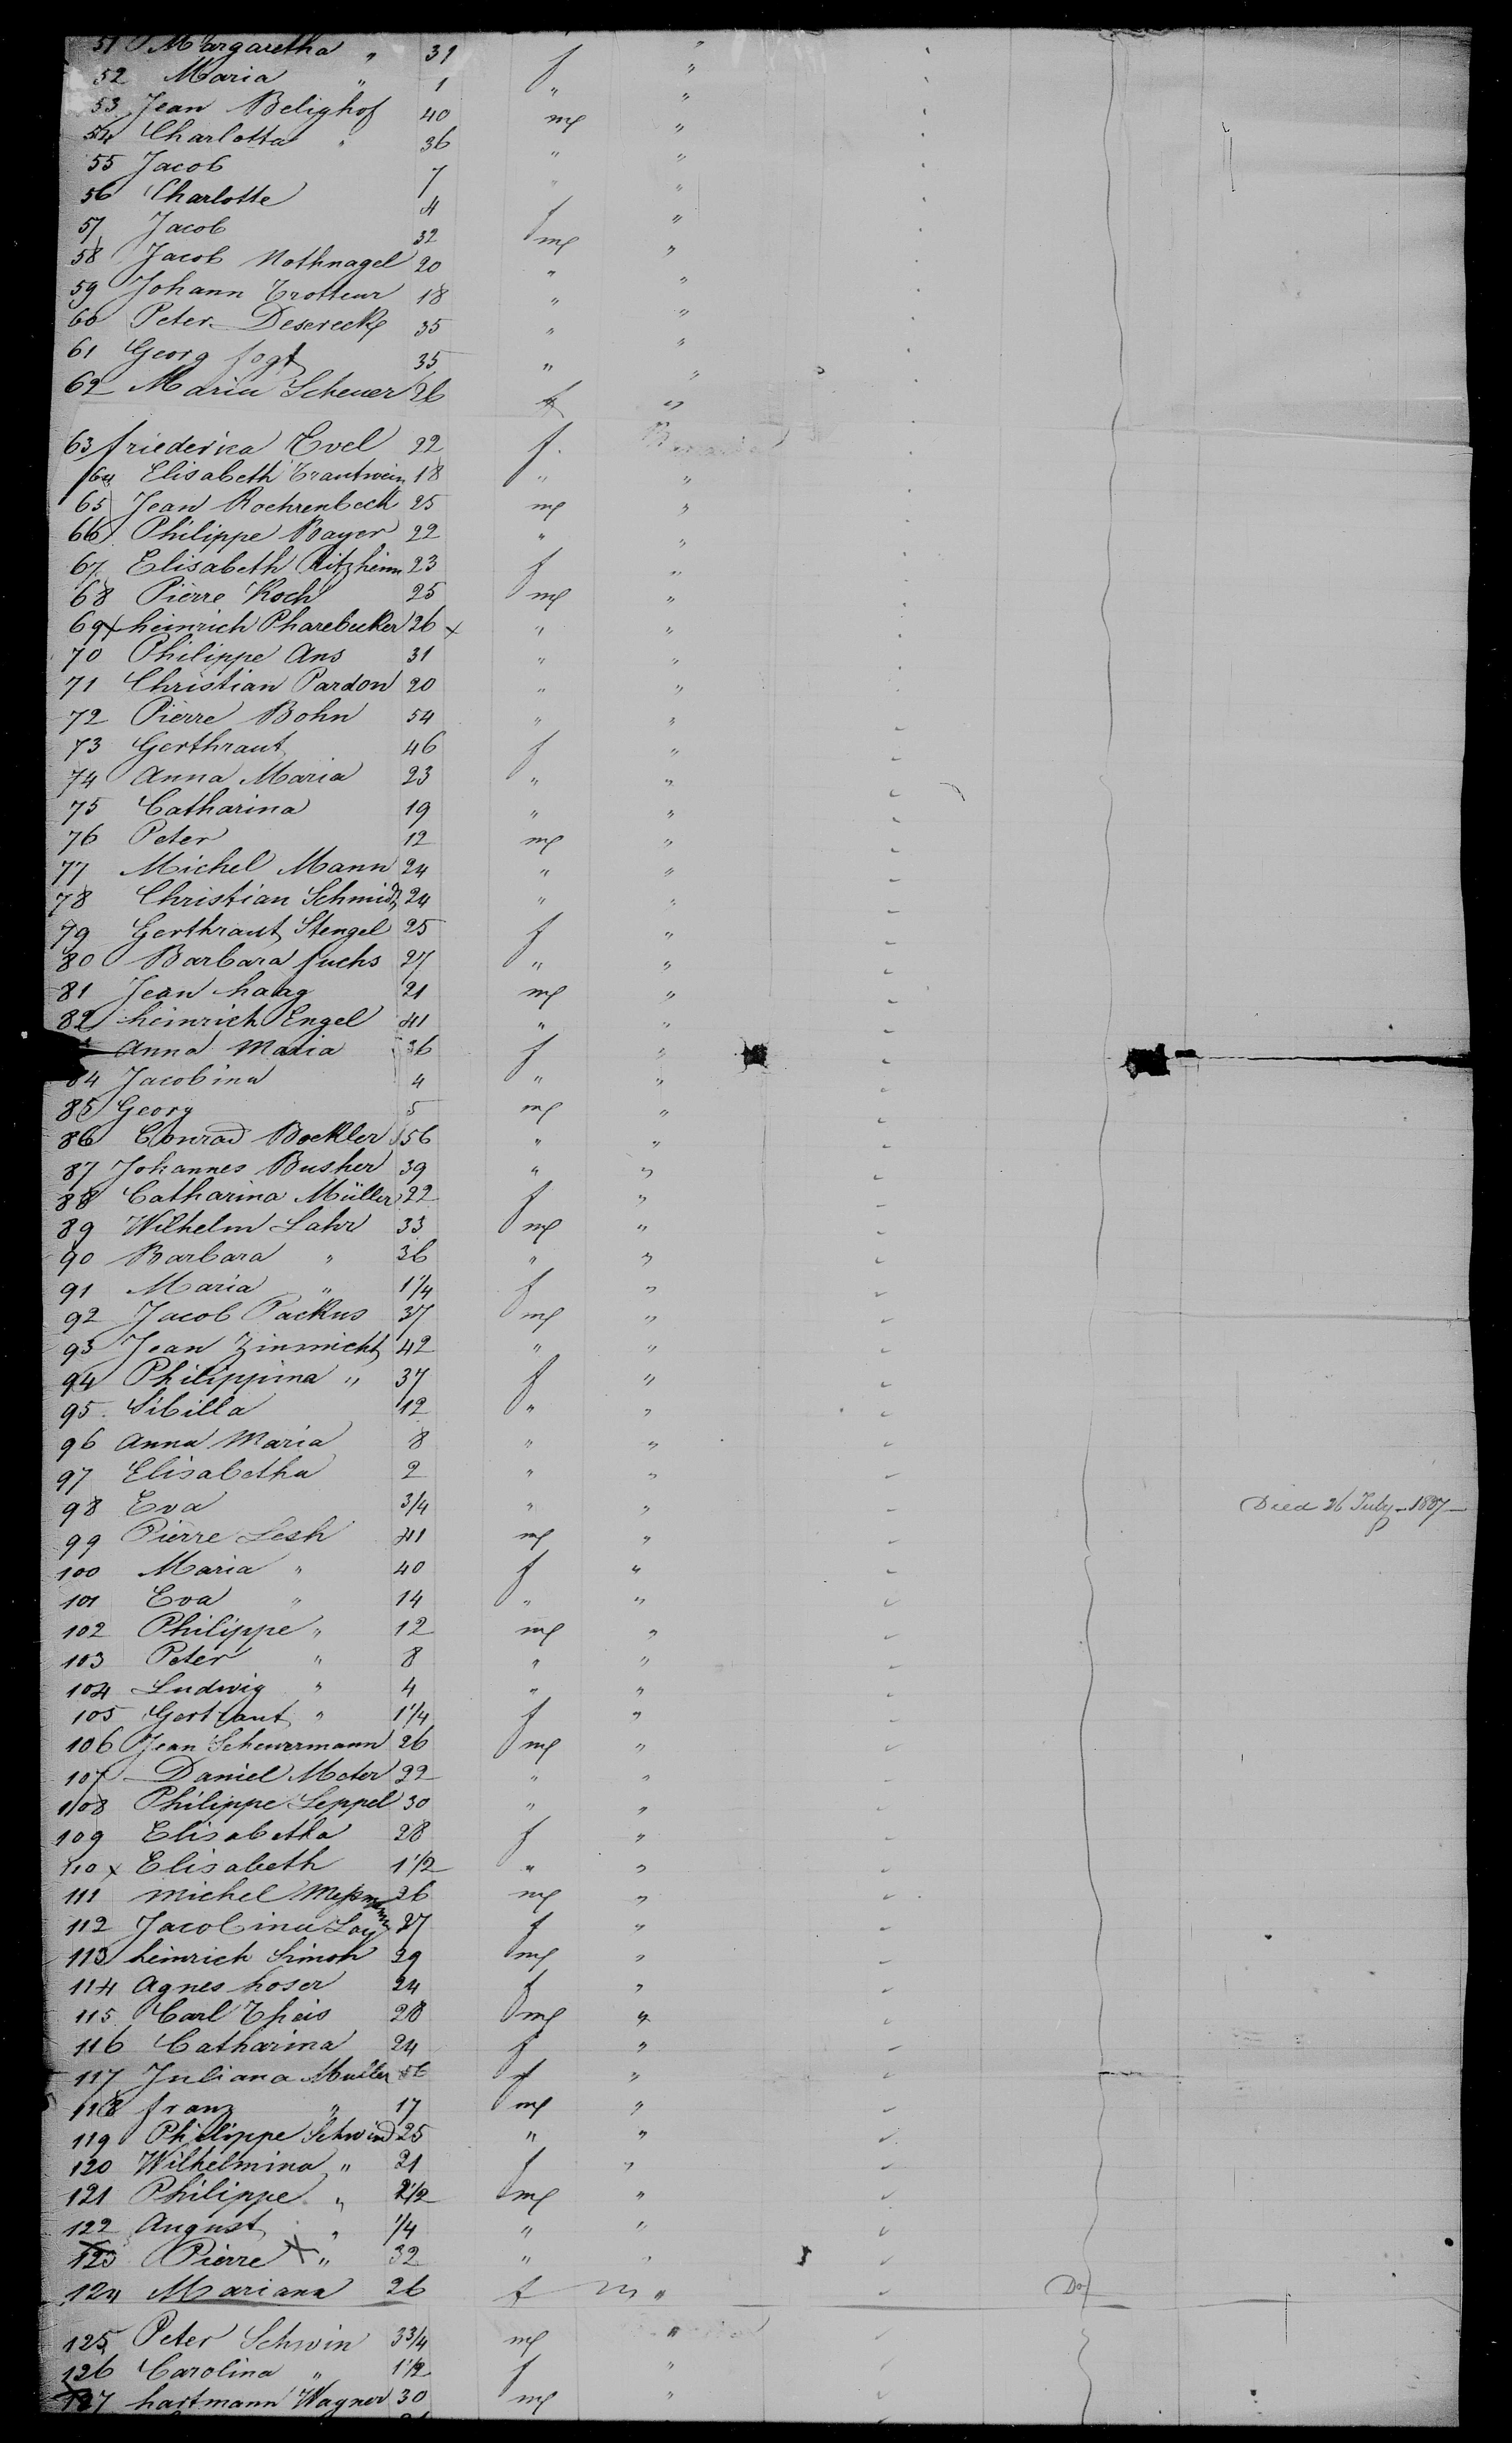 51 Margaretha " 31 f "
52 Maria " 1 " "
53 Jean Belighof 40 m "
54 Charlotta " 36 " "
55 Jacob 7 " "
56 Charlotte 4 f "
57 Jacob 32 m "
58 Jacob Nothnagel 20 " "
59 Johann Trotteur 18 " "
60 Peter Desereck 35 " "
61 Georg fogt 35 " "
62 Maria Scheuer 26 f "
63 friederica Evel 22 f.
64 Elisabeth Trautwein 18 " "
65 Jean Roehrenbeck 25 m "
66 Philippe Bayer 22 " "
67 Elisabeth Ritzheim 23 f "
68 Pierre Koch 25 m "
69 x heinrich Pharebecker 26 x " "
70 Philippe Ans 31 " "
71 Christian Pardon 20 " "
72 Pierre Bohn 54 " "
73 Gerthraut 46 f "
74 Anna Maria 23 " "
75 Catharina 19 " "
76 Peter 12 m "
77 Michel Mann 24 " "
78 Christian Schmidt 24 " "
79 Gerthraut Stengel 25 f "
80 Barbara fuchs 27 " "
81 Jean haag 21 m "
82 heinrich Engel 41 " "
Anna Maria 36 f "
84 Jacobina 4 " "
85 Georg 5 m "
86 Conrad Boekler 56 " "
87 Johannes Busher 39 " "
88 Catharina Müller 22 f "
89 Wilhelm Lahr 33 m "
90 Barbara " 36 " "
91 Maria " 1 1/4 f "
92 Jacob Packus 37 m "
93 Jean Zinsmicht 42 " "
94 Philippina " 37 f "
95 Sibilla 12 " "
96 Anna Maria 8 " "
97 Elisabetha 2 " "
98 Eva 3/4 " " Died 26 July - 1837
99 Pierre Lesh 41 m "
100 Maria " 40 f "
101 Eva " 14 " "
102 Philippe " 12 m "
103 Peter " 8 " "
104 Ludwig " 4 " "
105 Gertraut " 1 1/4 f "
106 Jean Scheuermann 26 m "
107 Daniel Meter 22 " "
108 Philippe Seppel 30 " "
109 Elisabetha 28 f "
110 x Elisabeth 1 1/2 " "
111 Michel 26 m "
112 Jacobina Loy 27 f "
113 heinrich Simon 29 m "
114 Agnes hoser 24 f "
115 Carl Theis 28 m "
116 Catharina 24 f "
117 Juliana Muller 56 f "
118 franz " 17 m "
119 Philippe Schwind 25 " "
120 Wilhelmina " 21 f "
121 Philippe " 2 1/2 m "
122 August " 1/4 " "
123 Pierre x " 32 " "
124 Mariana 26 f " Do
125 Peter Schwin 3 3/4 m "
126 Carolina " 1 1/2 f "
127 hartmann Wagner 30 m "